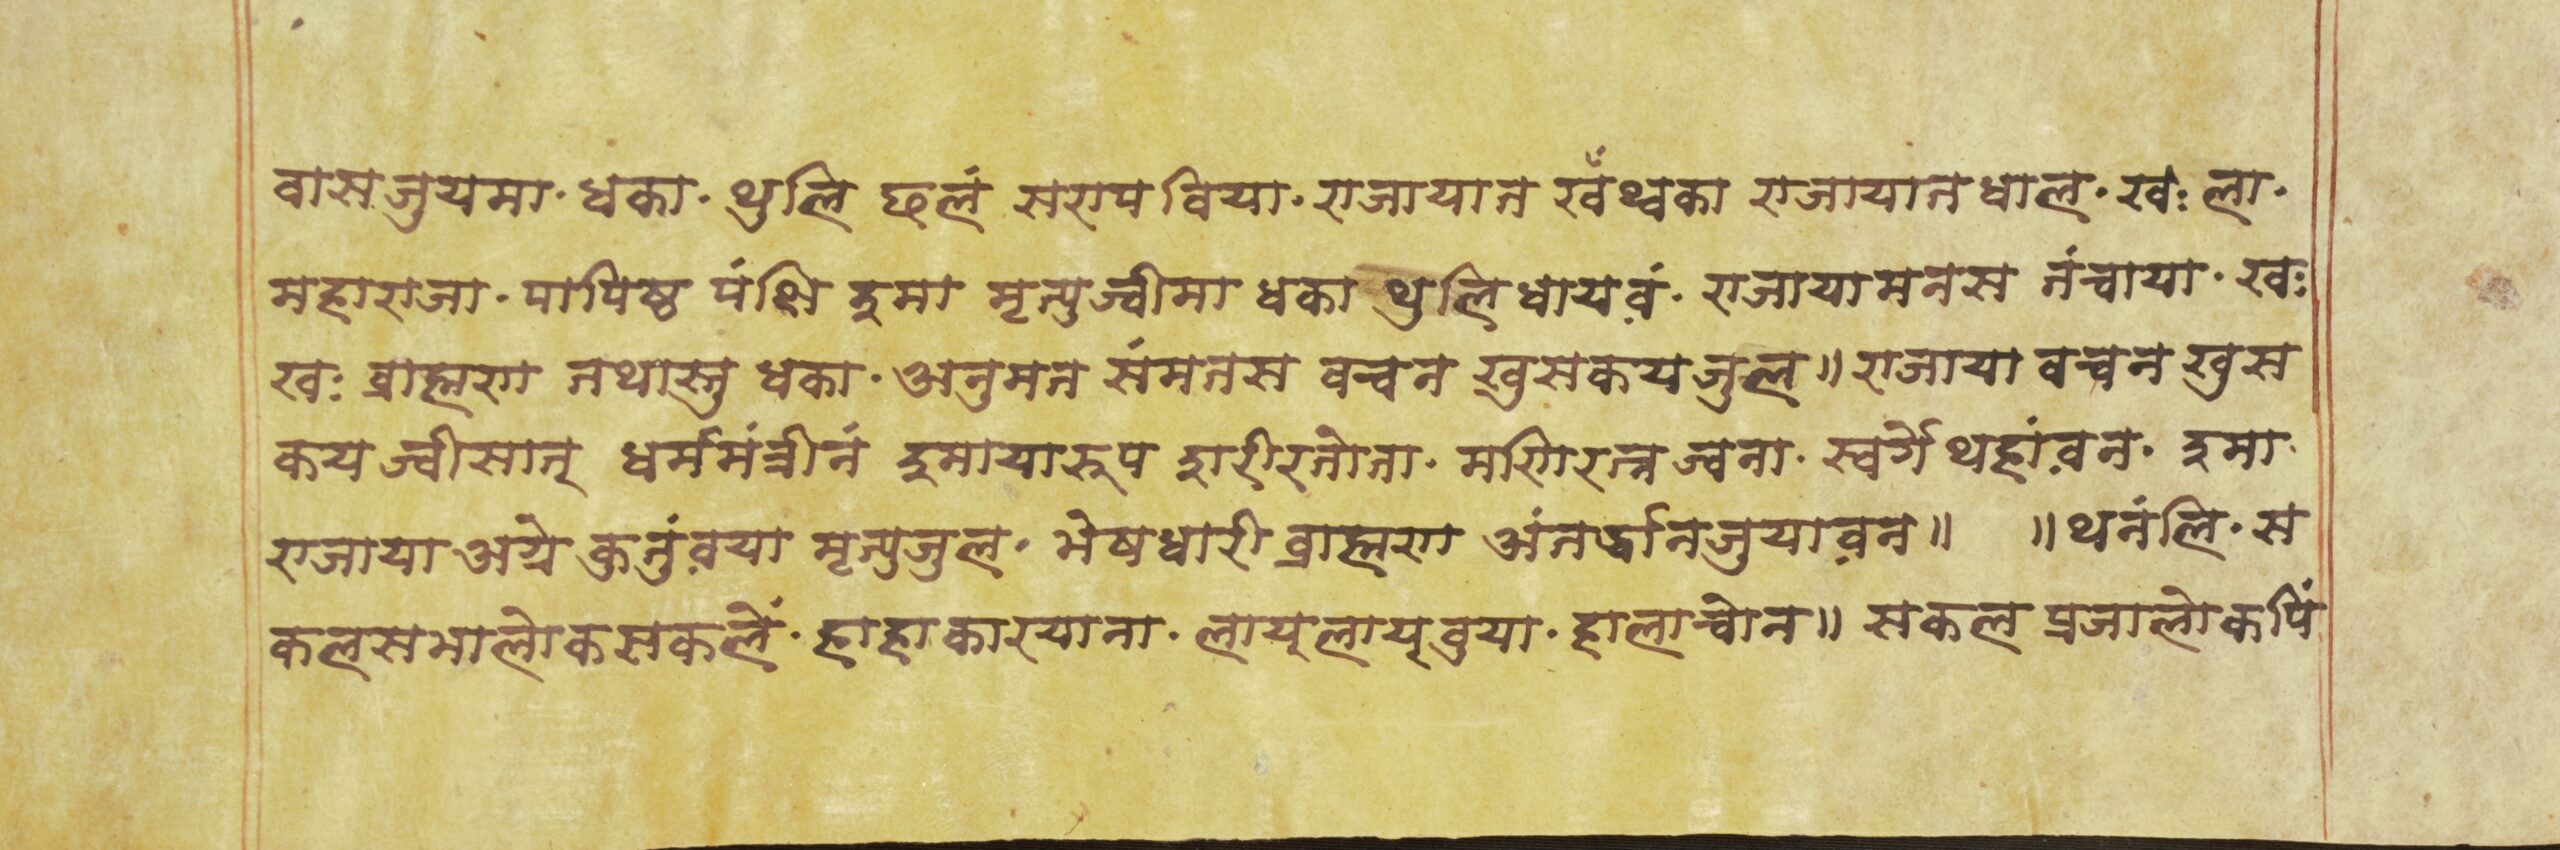 वासजुयमा· धका· थुलि छलं सराप विया· राजायात खँथ्वका राजायातधाल· खः ला·
महाराजा· पापिष्ठ पंक्षि दुमा मृत्युज्वीमा धका थुलिधायवं· राजायामनस तंचाया· खः
खः ब्राह्मण तथास्तु धका· अनुमत संमतस वचन खुसकयजुल॥ राजाया वचन खुस
कयज्वीसात् धर्ममंत्रीनं दुमायारूप शरीरतोता· मणिरत्नज्वना· स्वर्गे थहांवन· दुमा·
राजाया अग्रे कुतुंवया मृत्युजुल· भेषधारी ब्राह्मण अंतर्द्धानजुयावन॥ ॥थनंलि· स
कलसभालोकसकलें· हाहाकारयाना· लाय्‌लाय्‌वुया· हालाचोन॥ सकल प्रजालोकपिं